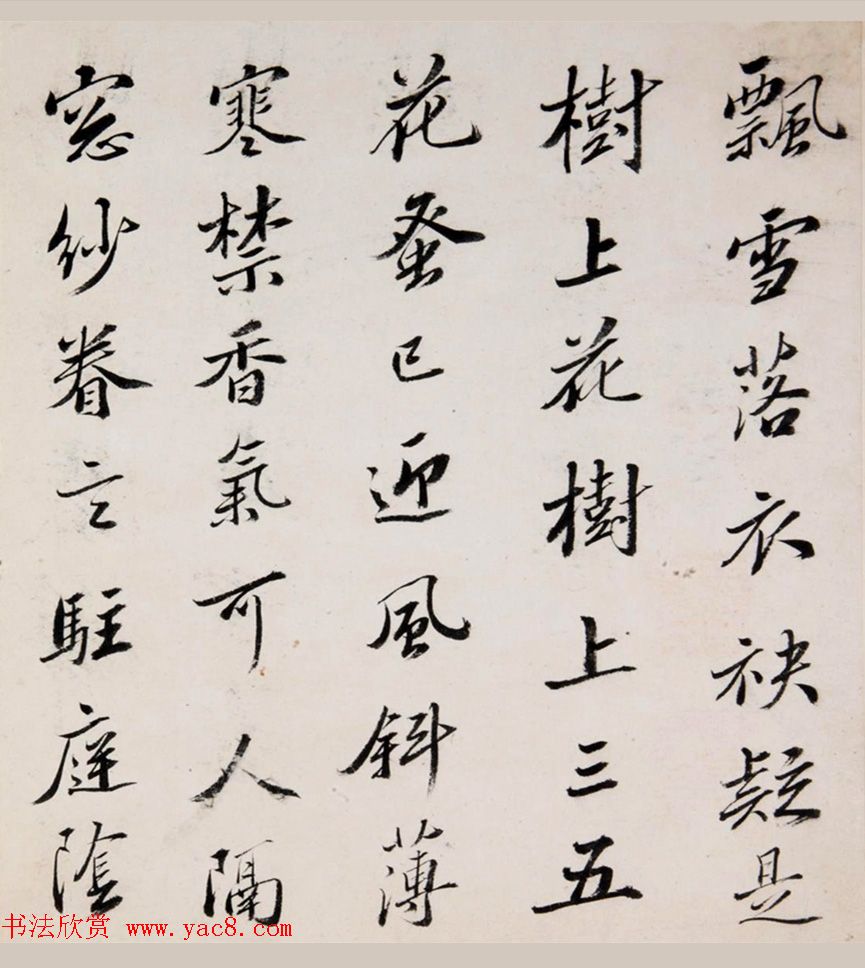 飄雪落衣袂疑是
樹上花樹上三五
花蚤已迎風斜薄
寒禁香氣可人隔
窓紗眷言駐庭陰
书法欣赏 www.yac8.com